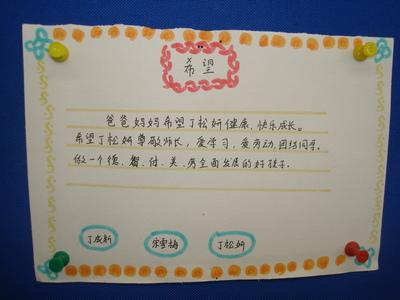 希望
爸爸妈妈希望丁松妍健康、快乐成长。
希望丁松妍尊敬师长，爱学习，爱劳动，团结同学。
做一个德、智、体、美、劳全面发展的好孩子。
丁成新 宋雪梅 丁松妍